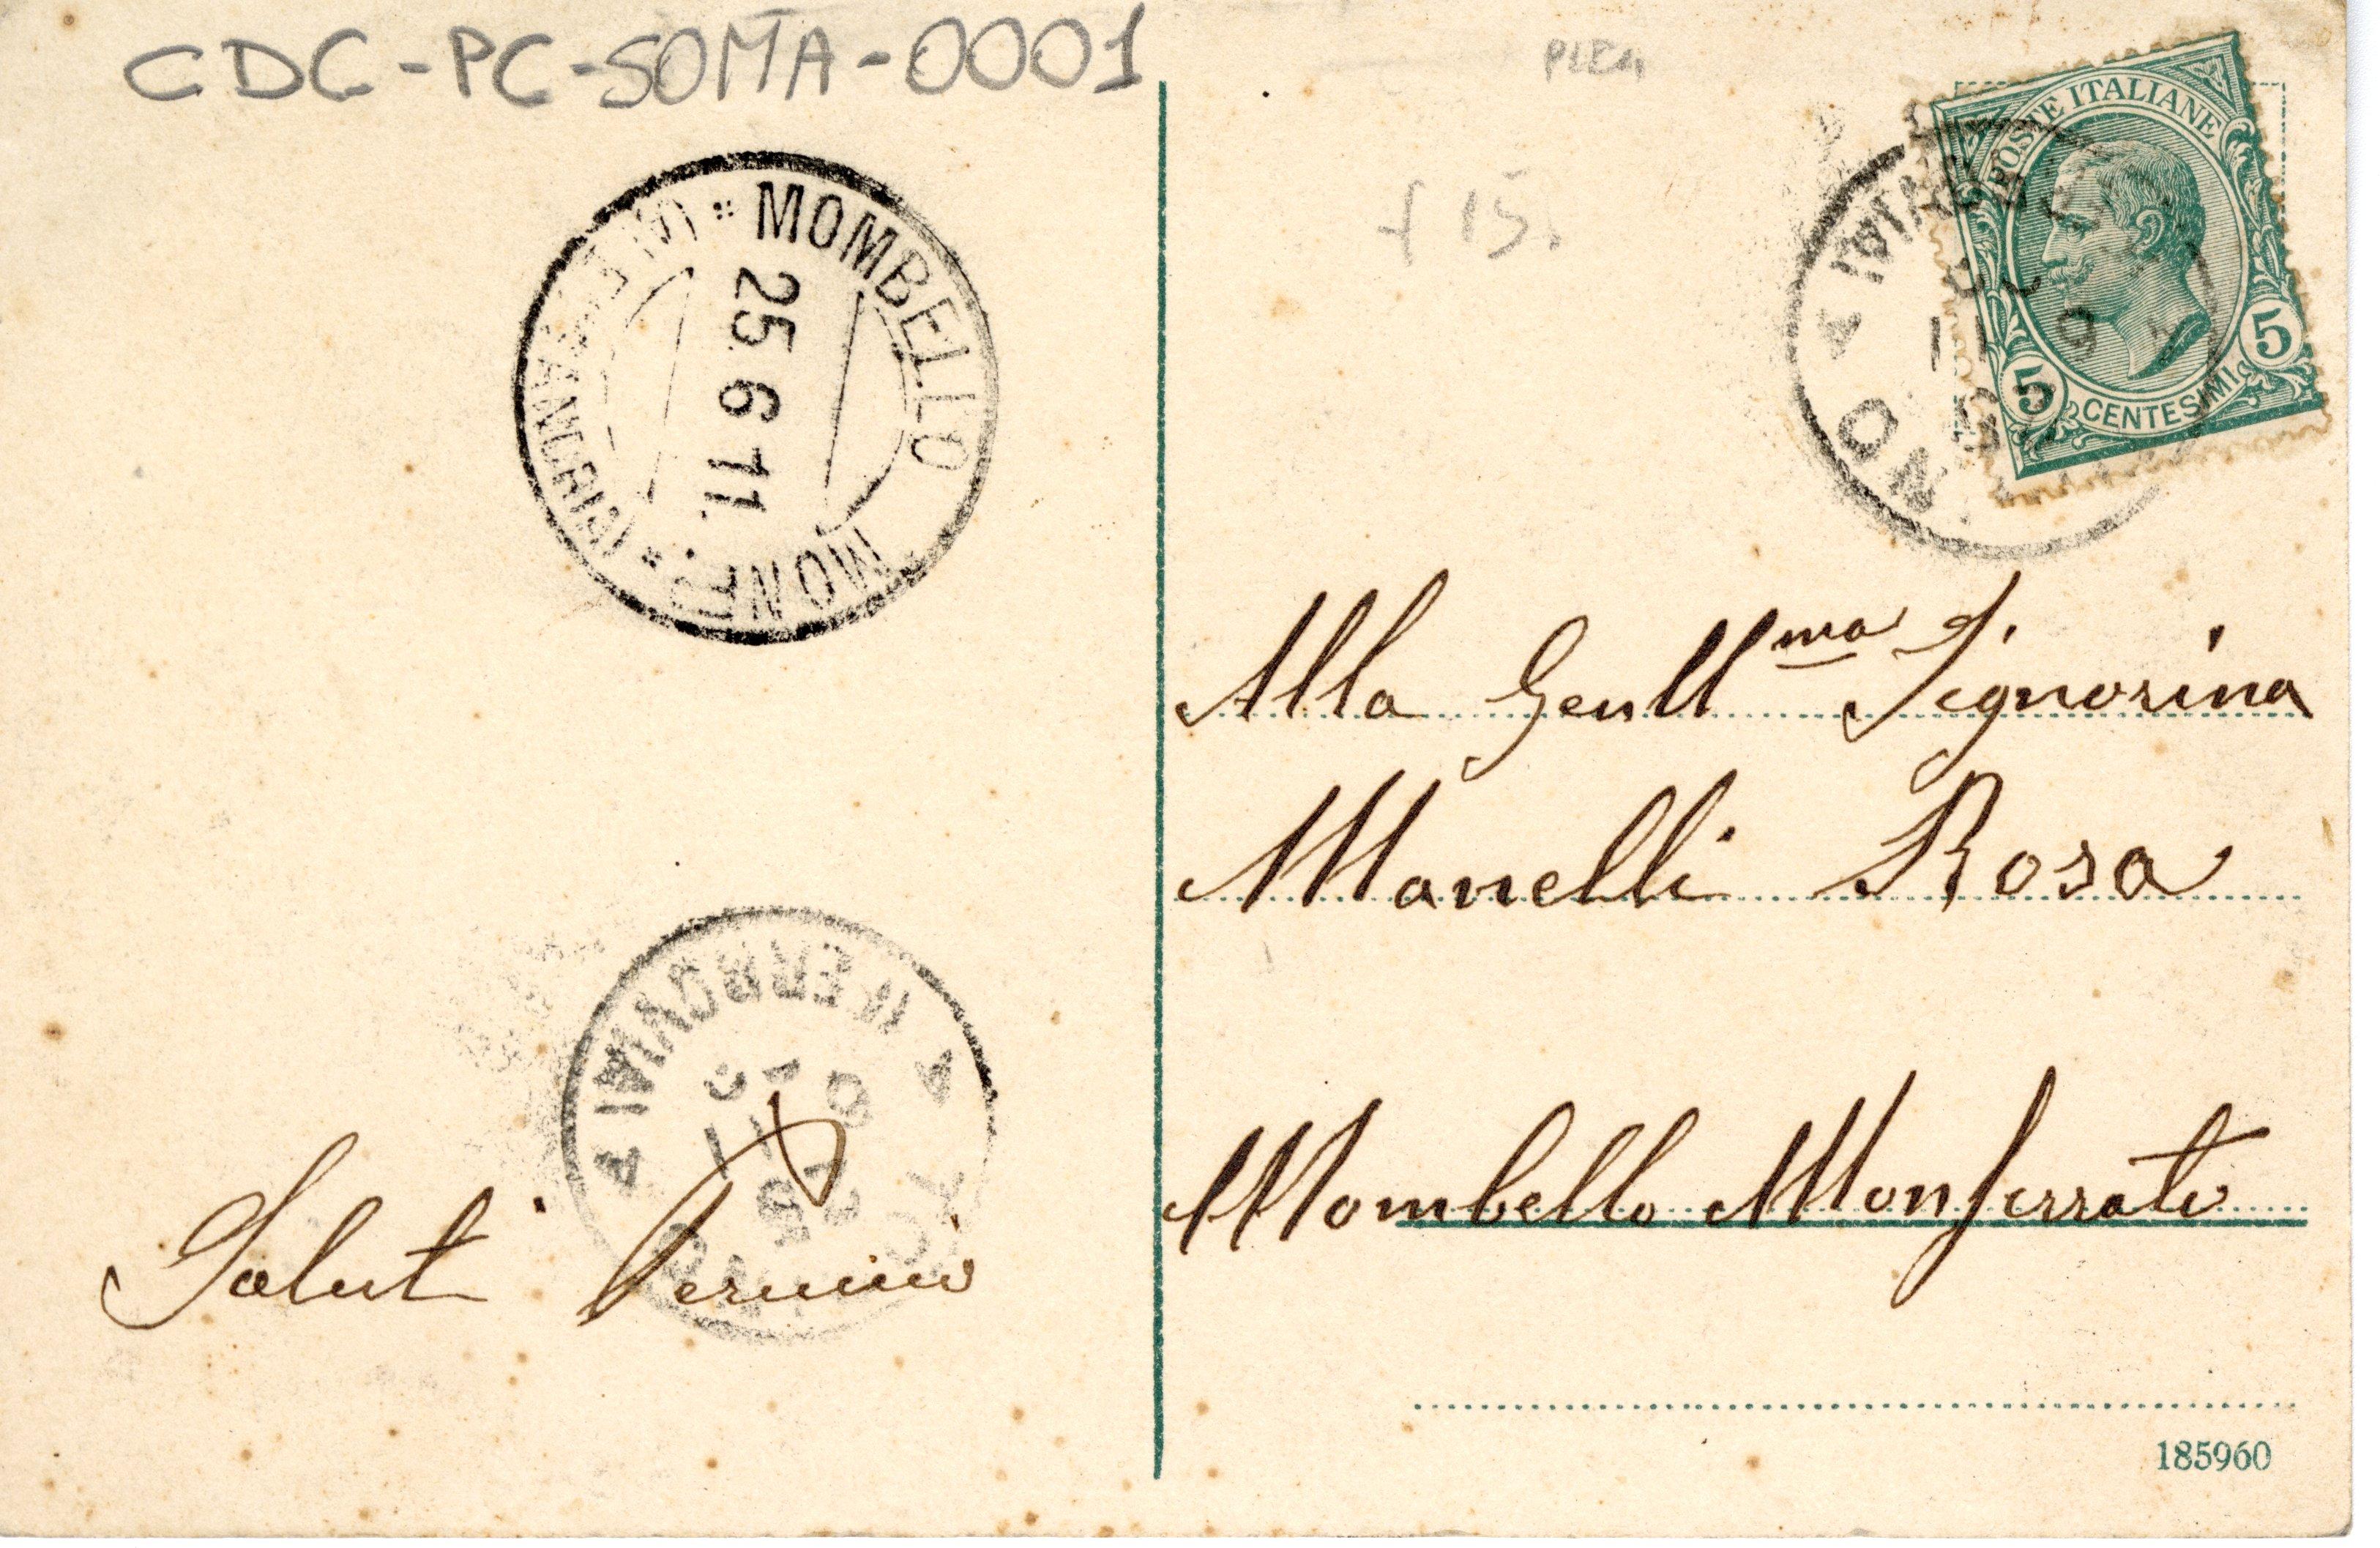 CDC-PC-SOMA-0001
MOMBELLO MONF.
25 6 11
POSTE ITALIANE
5 5
CENTESIMI
£ 15.
Alla Gentil.ma Signorina
Manelli Rosa
Mombello Monferrato
Saluti
FERROVIA
185960